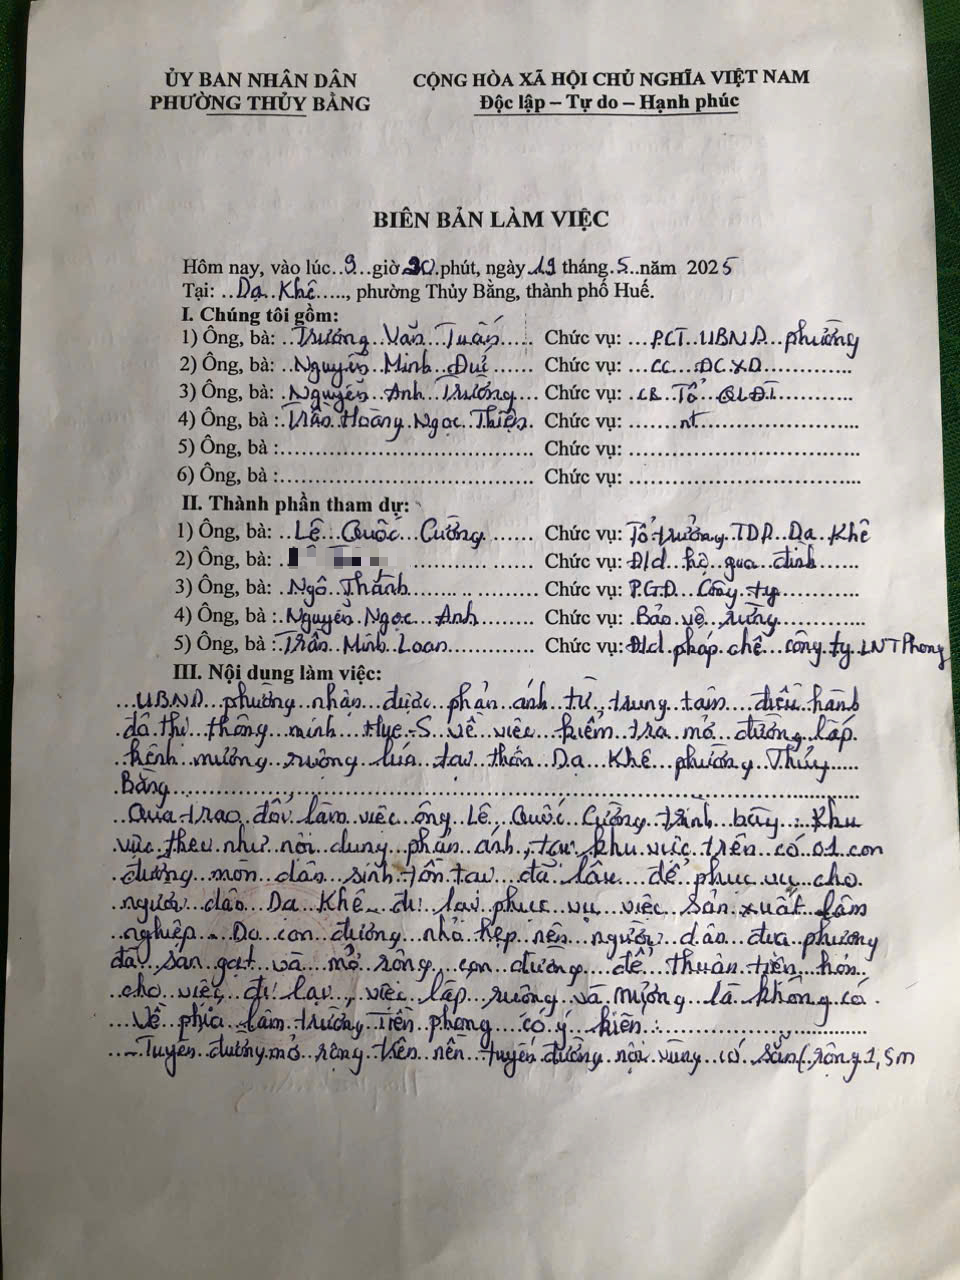 ỦY BAN NHÂN DÂN
PHƯỜNG THỦY BẰNG
CỘNG HÒA XÃ HỘI CHỦ NGHĨA VIỆT NAM
Độc lập – Tự do – Hạnh phúc
BIÊN BẢN LÀM VIỆC
Hôm nay, vào lúc..9...giờ 20.phút, ngày 19 tháng.5..năm 2025
Tại: ..Dạ..Khê....., phường Thủy Bằng, thành phố Huế.
I. Chúng tôi gồm:
1) Ông, bà: ..Trương..Văn..Tuấn..... Chức vụ: ...PCT..UBND..phường
2) Ông, bà: ..Nguyễn..Minh..Đui ...... Chức vụ: ...CC...ĐC.XD............
3) Ông, bà: .Nguyễn..Anh..Trường.... Chức vụ: .CB..Tổ..QLĐT...........
4) Ông, bà :.Trần..Hoàng.Ngọc.Thiện. Chức vụ: .......nt......................
5) Ông, bà :.................................... Chức vụ:.................................
6) Ông, bà :.................................... Chức vụ: .................................
II. Thành phần tham dự:
1) Ông, bà: ..Lê...Quốc...Cường ...... Chức vụ: Tổ trưởng.TDP..Dạ.Khê
2) Ông, bà: .. Chức vụ: Đ/d..hộ..gia..đình......
3) Ông, bà: ..Ngô..Thành........ .. ...... Chức vụ: P.GĐ..Công..ty..........
4) Ông, bà: .Nguyễn.Ngọc..Anh...... Chức vụ: .Bảo..vệ..rừng............
5) Ông, bà :.Trần..Minh..Loan ........ Chức vụ: Đ/d pháp chế..công.ty.LNTPhong
III. Nội dung làm việc:
...UBND..phường..nhận..được..phản..ánh..từ..trung..tâm...điều..hành
đô.thị..thông..minh..Hue-S..về..việc...kiểm..tra..mở..đường,.lấp
kênh..mương..ruộng..lúa..tại..thôn..Dạ..Khê..phường..Thủy.....
Bằng...............................................................................
.Qua.trao..đổi..làm.việc..ông..Lê..Quốc..Cường.trình..bày..:..Khu
vực.theo..như..nội..dung..phản..ánh.,.tại..khu.vực..trên..có..01.con
đường..mòn..dân..sinh..tồn.tại..đã..lâu....để..phục.vụ..cho.
người..dân..Dạ..Khê..đi..lại..phục..vụ..việc..sản.xuất..lâm
nghiệp...Do..con..đường..nhỏ.hẹp.nên..người..dân..địa..phương
đã..san.gạt..và..mở..rộng...con..đường....để..thuận.tiện..hơn..
.cho..việc..đi..lại..,.việc..lấp..ruộng..và..mương..là..không.có.
...Về..phía..lâm.trường.Tiền..phong..có.ý..kiến.:...........................
...-Tuyến.đường.mở..rộng.trên..nền..tuyến.đường.nội.vùng..có..sẵn(.rộng.1,5m